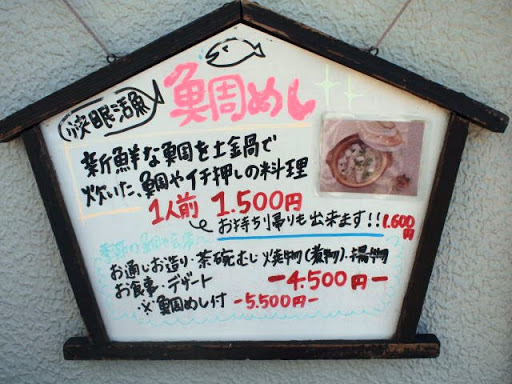 快眠活魚
鯛めし
新鮮な鯛を土鍋で
炊いた、鯛やイチ押しの料理
1人前 1.500円
お持ち帰りも出来ます!! 1.600円
お通しお造り・茶碗むし・焼物(煮物)・揚物
お食事・デザート -4.500円-
※鯛めし付 -5.500円-